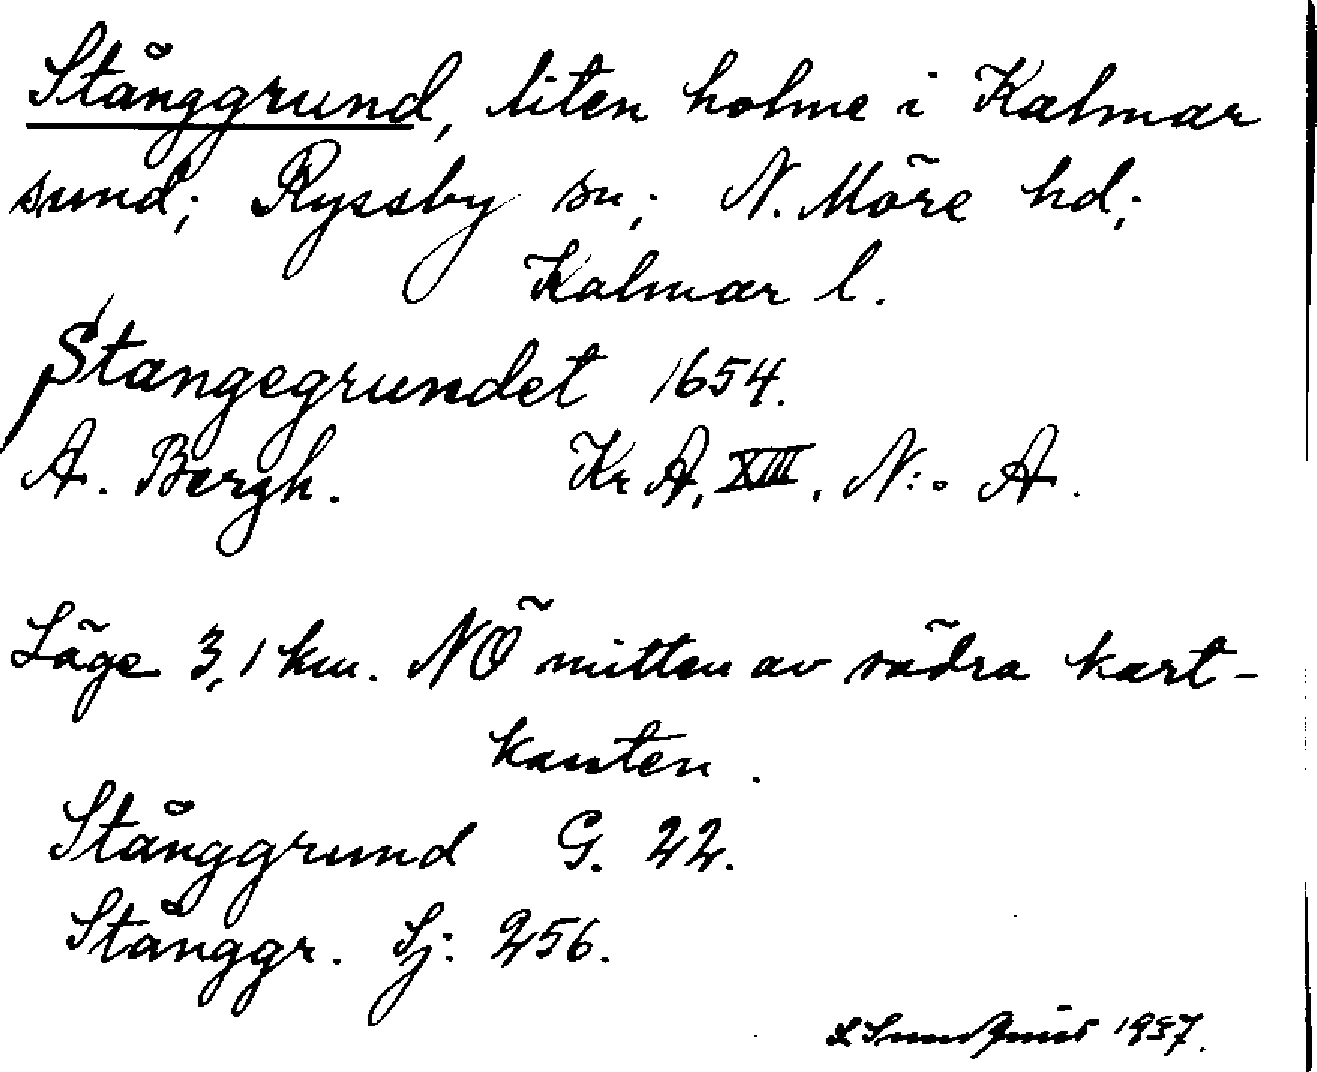 Stånggrund, liten holme i Kalmar
sund; Ryssby sn; N. Möre hd;
Kalmar l.
Stangegrundet 1654.
A. Bergh. Kr A, XIII, N:o A.
Läge 3,1 km. NÖ mitten av södra kart-
kanten.
Stånggrund G. 22.
Stånggr. Sj: 256.
1937.